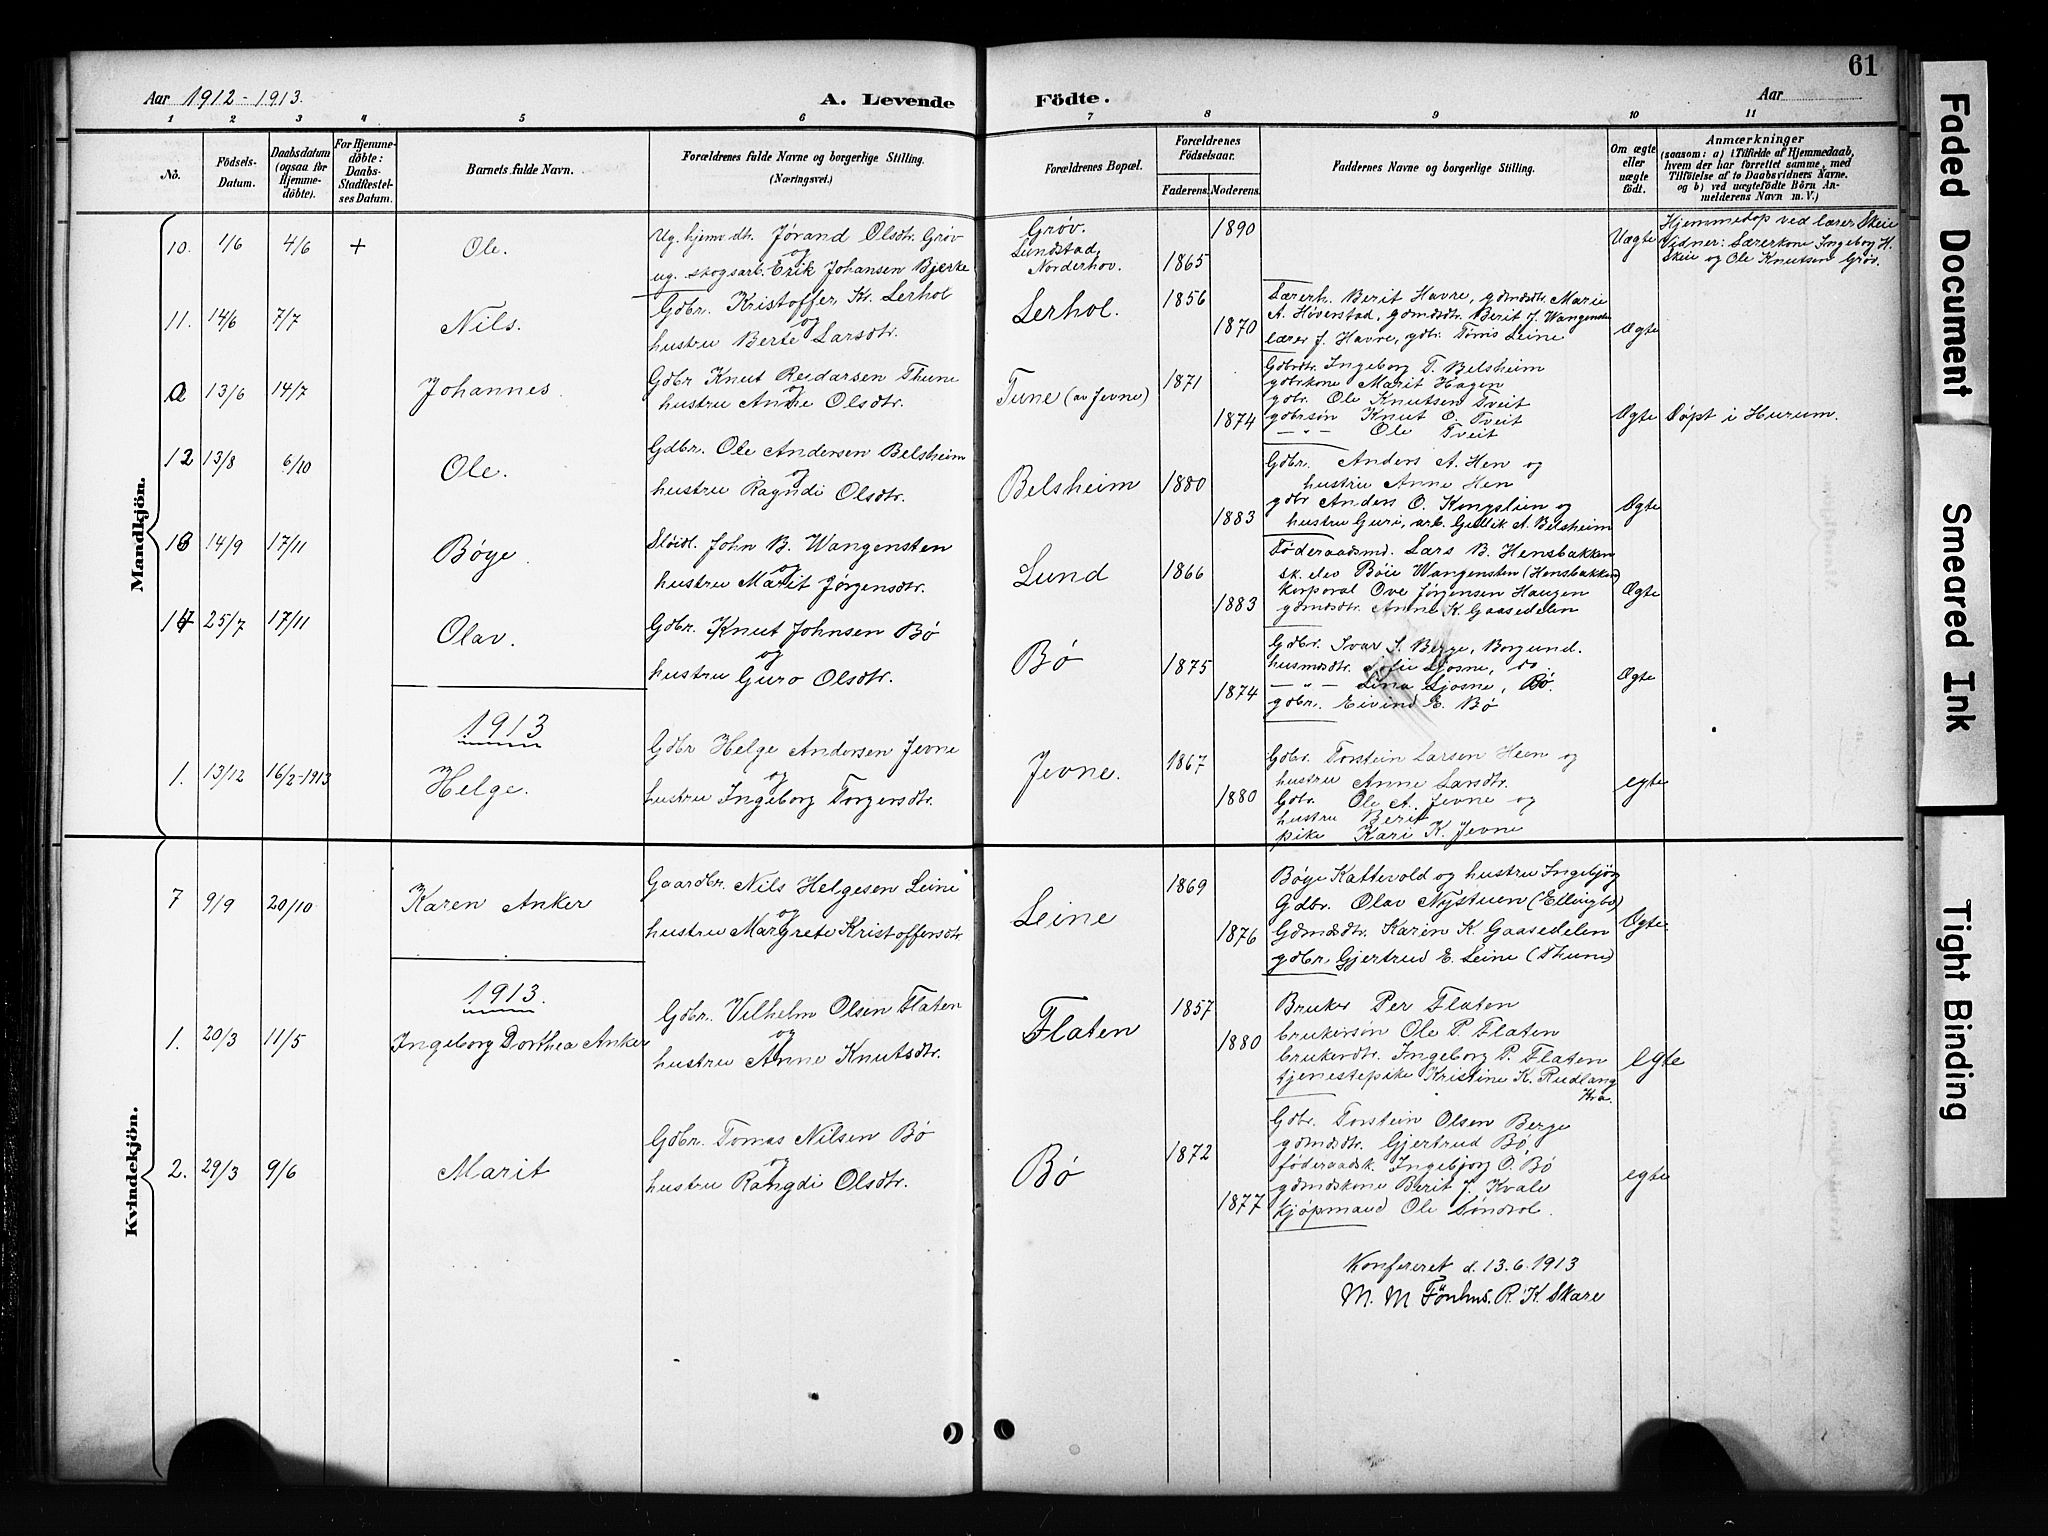 61
Aar 1912-1913.
A. Levende Födte.
Aar
1 2 3 4 5 6 7 8 9 10 11
No.
Födsels-Datum.
Daabsdatum (ogsaa for Hjemme-döbte).
For Hjemme-döbte: Daabs-Stadfæstel-ses Datum.
Barnets fulde Navn.
Forældrenes fulde Navne og borgerlige Stilling.
(Næringsvei.)
Forældrenes Bopæl.
Forældrenes Födselsaar.
Faderens. Moderens.
Faddernes Navne og borgerlige Stilling.
Om ægte eller uægte födt.
Anmærkninger
(saasom: a) i Tilfælde af Hjemmedaab, hvem der har forrettet samme, med Tilföielse af to Daabsvidners Navne. og b) ved uægtefödte Börn An-melderens Navn m. V.)
Mandkjön.
10. 1/6 4/6 + Ole.
Ug. hjemv. dtr. Jørand Olsdtr. Grøv
og
ug. skogsarb. Erik Johansen Bjerke
Grøv.
Lundstad,
Norderhov.
1890
1865
Uægte
Hjemmedøp ved lærer Skeie
Vidner: Lærerkone Ingeborg H.
Skeie og Ole Knutsen Grøv.
11. 14/6 7/7 Nils.
Gdbr. Kristoffer Kr. Lerhol
og
hustru Berte Larsdtr.
Lerhol.
1856
1870
Lærerh. Berit Havre, gdmdsdtr. Marie
A. Høverstad, gdmdsdtr. Berit J. Wangensten
lærer J. Havre, gdbr. Tøms Leine
Ægte
a 13/6 14/7 Johannes.
Gdbr Knut Reidarsen Thune
og
hustru Anne Olsdtr.
Tune (av Jevne)
1871
1874
Gdbrdtr. Ingeborg T. Belsheim
gdbrkone Marit Hagen
gdbr. Ole Knutsen Tveit
gdbrsøn Knut O. Tveit
— " — Ole Tveit
Ægte
Døpt i Hurum.
12 13/8 6/10 Ole.
Gdbr. Ole Andersen Belsheim
og
hustru Ragndi Olsdtr.
Belsheim
1880
1883
Gdbr. Anders A. Hen og
hustru Anne Hen
gdbr Anders O. Kongslien og
hustru Guri, arb. Gullik A. Belsheim
Ægte
13 14/9 17/11 Bøye.
Sløidl. John B. Wangensten
og
hustru Marit Jørgensdtr.
Lund
1866
1883
Føderaadsmd. Lars B. Hensbakken
sk. elev Bøie Wangensten (Hensbakken)
Korporal Ove Jørgensen Haugen
gdmdsdtr. Anne K. Gaasedelen
Ægte
14 25/7 17/11 Olav.
Gdbr. Knut Johnsen Bø
og
hustru Guro Olsdtr.
Bø
1875
1874
Gdbr. Ivar S. Berge, Borgund.
husmdsdtr. Sofie Ljøsne, do.
— " — Lina Ljøsne, Bø.
gdbr. Eivind E. Bø
Ægte
1913
1. 13/12 16/2-1913 Helge.
Gdbr Helge Andersen Jevne
og
hustru Ingeborg Torgersdtr.
Jevne.
1867
1880
Gdbr. Torstein Larsen Heen og
hustru Anne Larsdtr.
Gdbr. Ole A. Jevne og
hustru Berit
pike Kari K. Jevne
egte
Kvindekjön.
7 9/9 20/10 Karen Anker
Gaardbr. Nils Helgesen Leine
og
hustru Margrete Kristoffersdtr
Leine
1869
1876
Bøye Kattevold og hustru Ingebjørg
Gdbr. Olav Nystuen (Ellingbø)
Gdmdsdtr. Karen K. Gaasedelen
gdbr. Gjertrud E. Leine (Thune)
Ægte
1913.
1. 20/3 11/5 Ingeborg Dorthea Anker
Gdbr. Vilhelm Olsen Flaten
og
hustru Anne Knutsdtr.
Flaten
1857
1880
Bruker Per Flaten
brukersøn Ole P. Flaten
brukerdtr. Ingeborg P. Flaten
tjenestepike Kristine K. Rudlang
Kra.
egte
2. 29/3 9/6 Marit
Gdbr. Tomas Nilsen Bø
og
hustru Rangdi Olsdtr.
Bø
1872
1877
Gdbr. Torstein Olsen Berge
gdmdsdtr. Gjertrud Bø
føderaadsk. Ingebjorg O. Bø
gdmdskone Berit J. Kvale
kjøpmand Ole Søndrol.
egte
Konfereret d. 13.6.1913
M. M Fönhus. R. K. Skare
Faded Document
Smeared Ink
Tight Binding